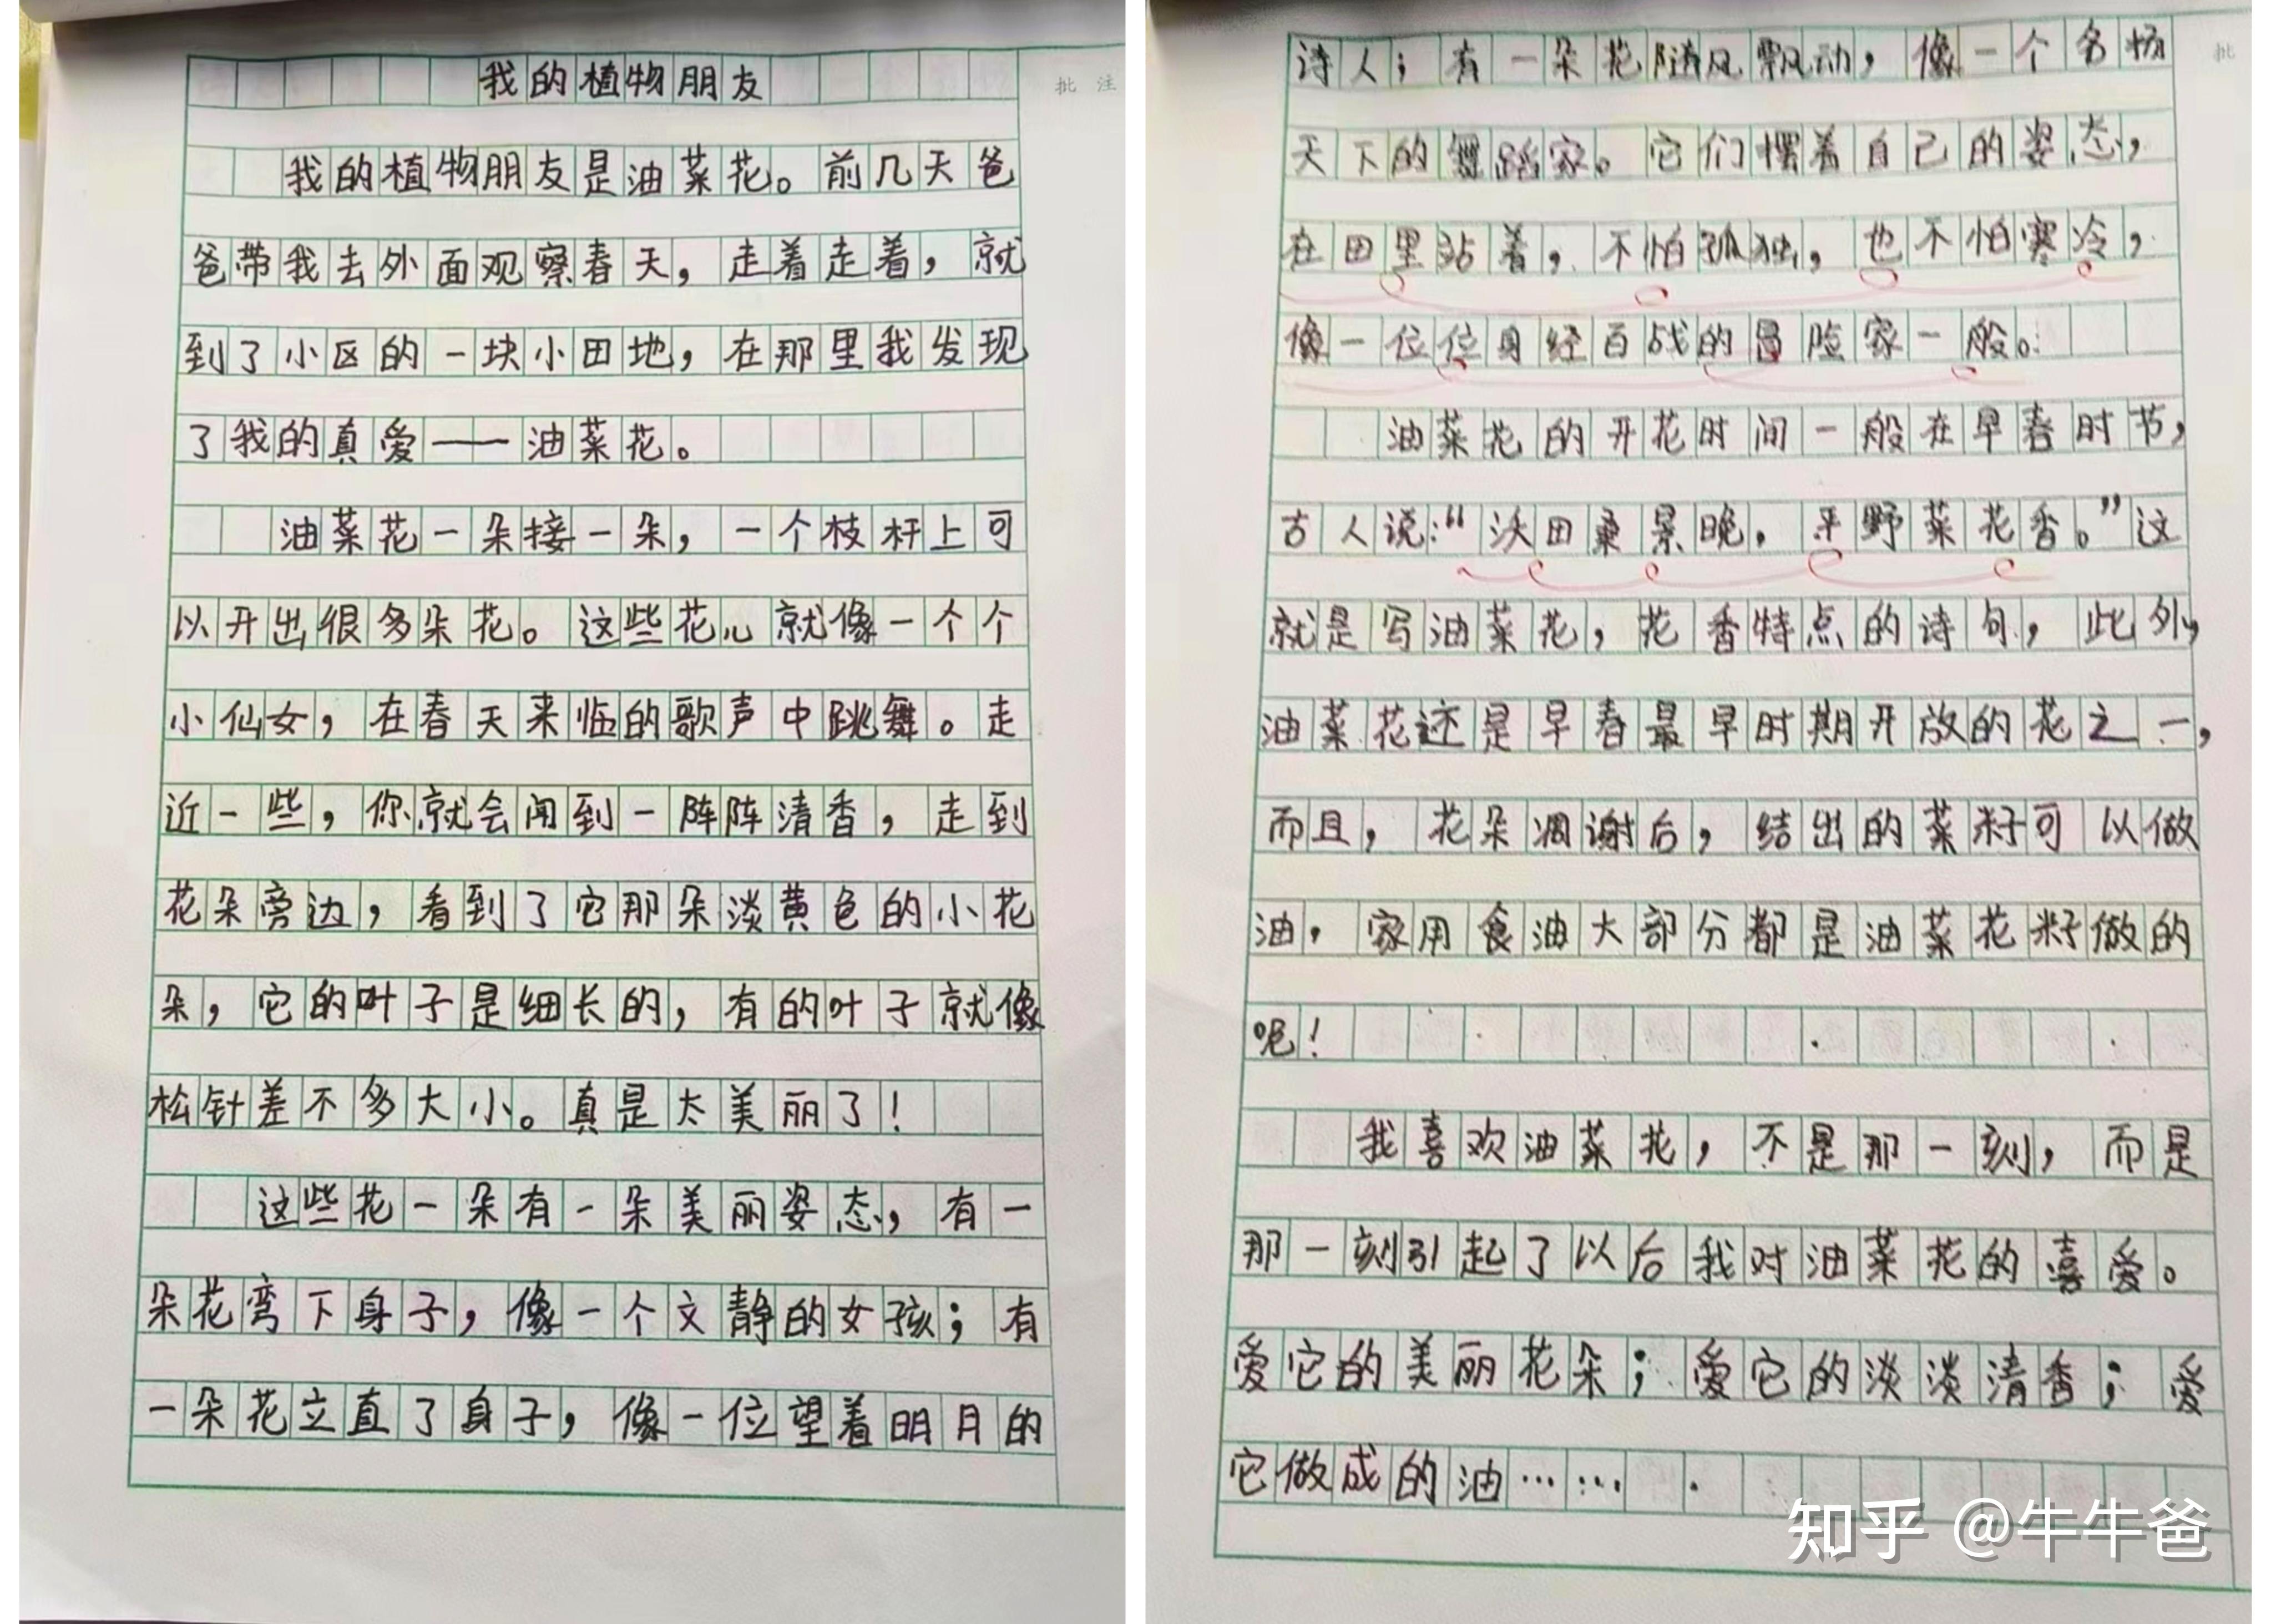 我的植物朋友
批 注
我的植物朋友是油菜花。前几天爸
爸带我去外面观察春天，走着走着，就
到了小区的一块小田地，在那里我发现
了我的真爱——油菜花。
油菜花一朵接一朵，一个枝杆上可
以开出很多朵花。这些花儿就像一个个
小仙女，在春天来临的歌声中跳舞。走
近一些，你就会闻到一阵阵清香，走到
花朵旁边，看到了它那朵淡黄色的小花
朵，它的叶子是细长的，有的叶子就像
松针差不多大小。真是太美丽了！
这些花一朵有一朵美丽姿态，有一
朵花弯下身子，像一个文静的女孩；有
一朵花立直了身子，像一位望着明月的
批
诗人；有一朵花随风飘动，像一个名扬
天下的舞蹈家。它们摆着自己的姿态，
在田里站着，不怕孤独，也不怕寒冷，
像一位位身经百战的冒险家一般。
油菜花的开花时间一般在早春时节，
古人说：“沃田桑景晚，平野菜花香。”这
就是写油菜花，花香特点的诗句，此外，
油菜花还是早春最早时期开放的花之一，
而且，花朵凋谢后，结出的菜籽可以做
油，家用食油大部分都是油菜花籽做的
呢！
我喜欢油菜花，不是那一刻，而是
那一刻引起了以后我对油菜花的喜爱。
爱它的美丽花朵；爱它的淡淡清香；爱
它做成的油……
知乎 @牛牛爸